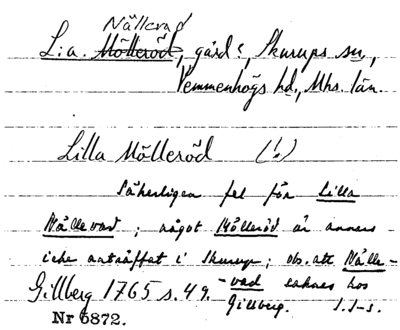 Nällevad
L:a. Mölleröd, gård?, Skurups sn,
Vemmenhögs hd., Mhs. län.
Lilla Mölleröd (!)
Säkerligen fel för Lilla
Nällevad; något Mölleröd är annars
icke anträffat i Skurup; obs. att Nälle-
-vad saknas hos
Gillberg 1765 s. 49.
Gillberg. I.I-s.
Nr 6872.